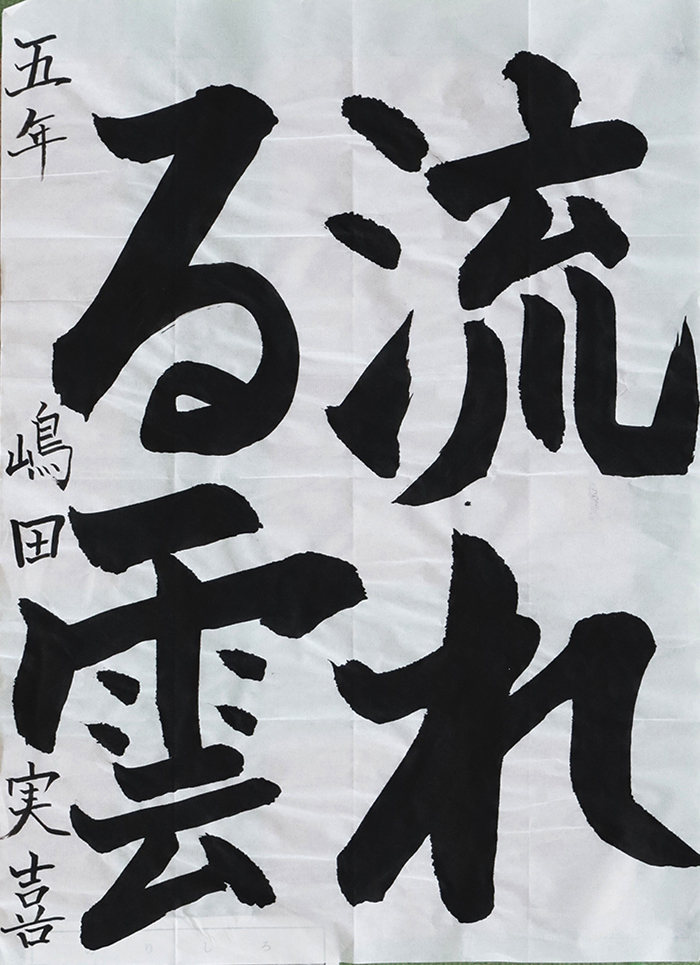 流れ
る雲
五年 嶋田実喜